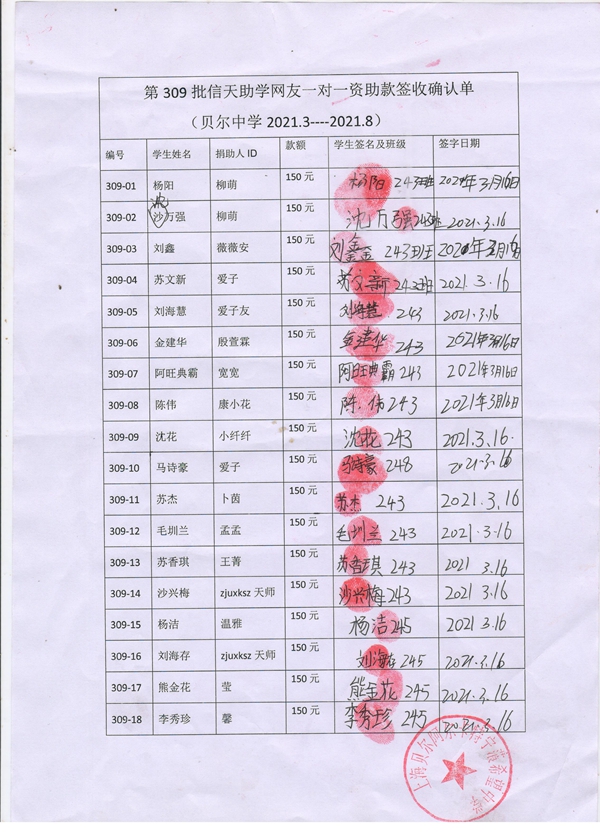 第 309 批信天助学网友一对一资助款签收确认单
（贝尔中学 2021.3----2021.8）
编号 学生姓名 捐助人 ID 款额 学生签名及班级 签字日期
309-01 杨阳 柳萌 150 元 杨阳 243班 2021年3月16日
沈
309-02 沙万强 柳萌 150 元 沈万强 243班 2021.3.16
309-03 刘鑫 薇薇安 150 元 刘鑫 243班 2021年3月16日
309-04 苏文新 爱子 150 元 苏文新 243班 2021.3.16
309-05 刘海慧 爱子友 150 元 刘海慧 243 2021.3.16
309-06 金建华 殷萱霖 150 元 金建华 243 2021年3月16日
309-07 阿旺典霸 宽宽 150 元 阿旺典霸 243 2021年3月16日
309-08 陈伟 康小花 150 元 陈伟 243 2021年3月16日
309-09 沈花 小纤纤 150 元 沈花 243 2021.3.16.
309-10 马诗豪 爱子 150 元 马诗豪 248 2021.3.16
309-11 苏杰 卜茵 150 元 苏杰 243 2021.3.16
309-12 毛圳兰 孟孟 150 元 毛圳兰 243 2021.3.16
309-13 苏香琪 王菁 150 元 苏香琪 243 2021 3.16
309-14 沙兴梅 zjuxksz 天师 150 元 沙兴梅 243 2021 3.16
309-15 杨洁 温雅 150 元 杨洁 245 2021 3.16
309-16 刘海存 zjuxksz 天师 150 元 刘海存 245 2021.3.16
309-17 熊金花 莹 150 元 熊金花 245 2021.3.16
309-18 李秀珍 馨 150 元 李秀珍 245 2021.3.16
上海贝尔阿尔卡特宁蒗希望中学